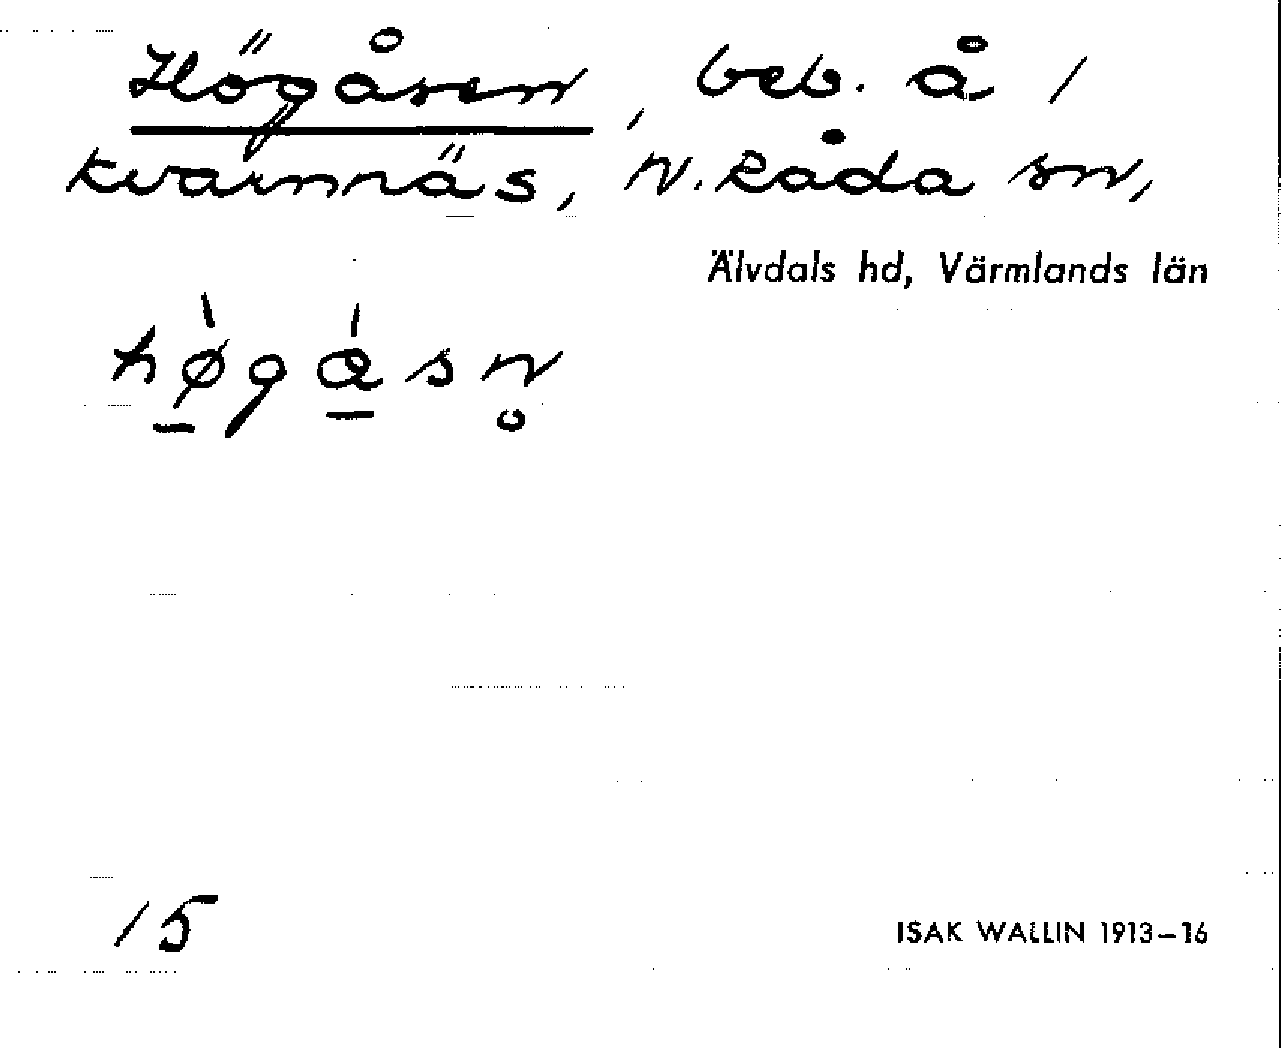 Högåsen, beb. å 1
Kvarnnäs, N. Råda sn,
Älvdals hd, Värmlands län
hø̱̀gá̱sn̥
15
ISAK WALLIN 1913–16